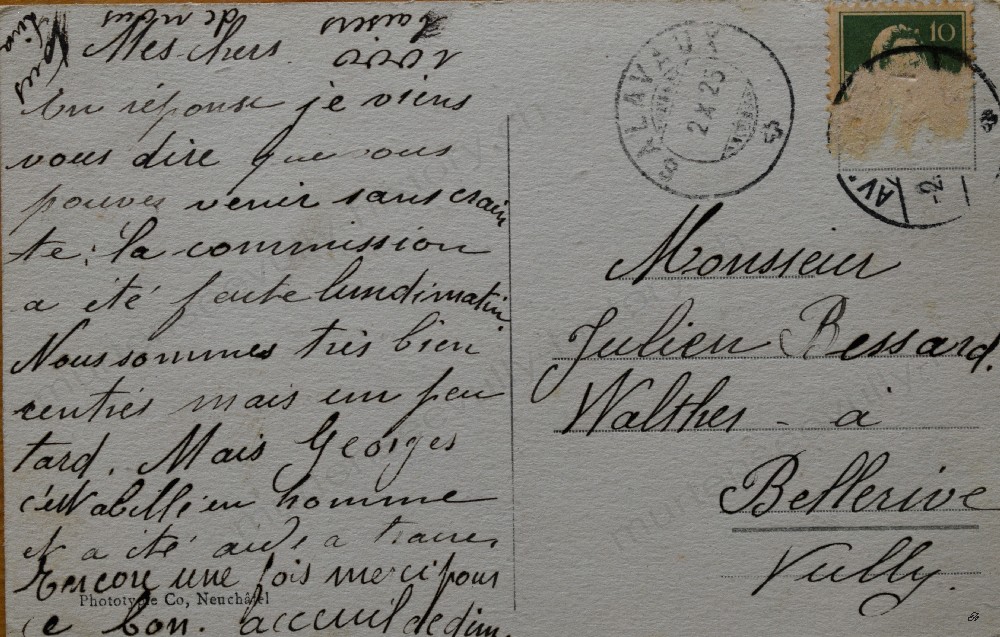 Mes chers.
En réponse je viens
vous dire que vous
pouvez venir sans crain
te; la commission
a été faite lundi matin.
Nous sommes très bien
rentrés mais un peu
tard. Mais Georges
en homme
et a été
Encore une fois merci pour
ce bon. accueil de dim.
baisers de vous
Phototypie Co, Neuchâtel
SALAVAUX
2 X 25
10
AV
-2
Monsieur
Julien Bessard.
Walther - à
Bellerive
Vully.